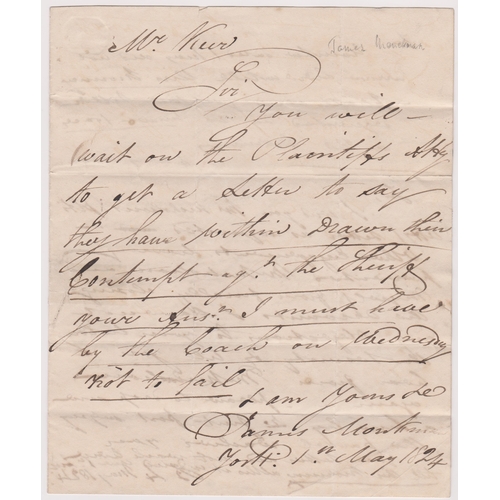 Mr Keir
Sir
You will
wait on the Plaintiffs Atty
to get a Letter to say
they have within Drawn their
Contempt agst the Sheriff
your Ansr I must have
by the Coach on Wednesday
not to fail
I am Yours &c
James
York 1st May 1824
James